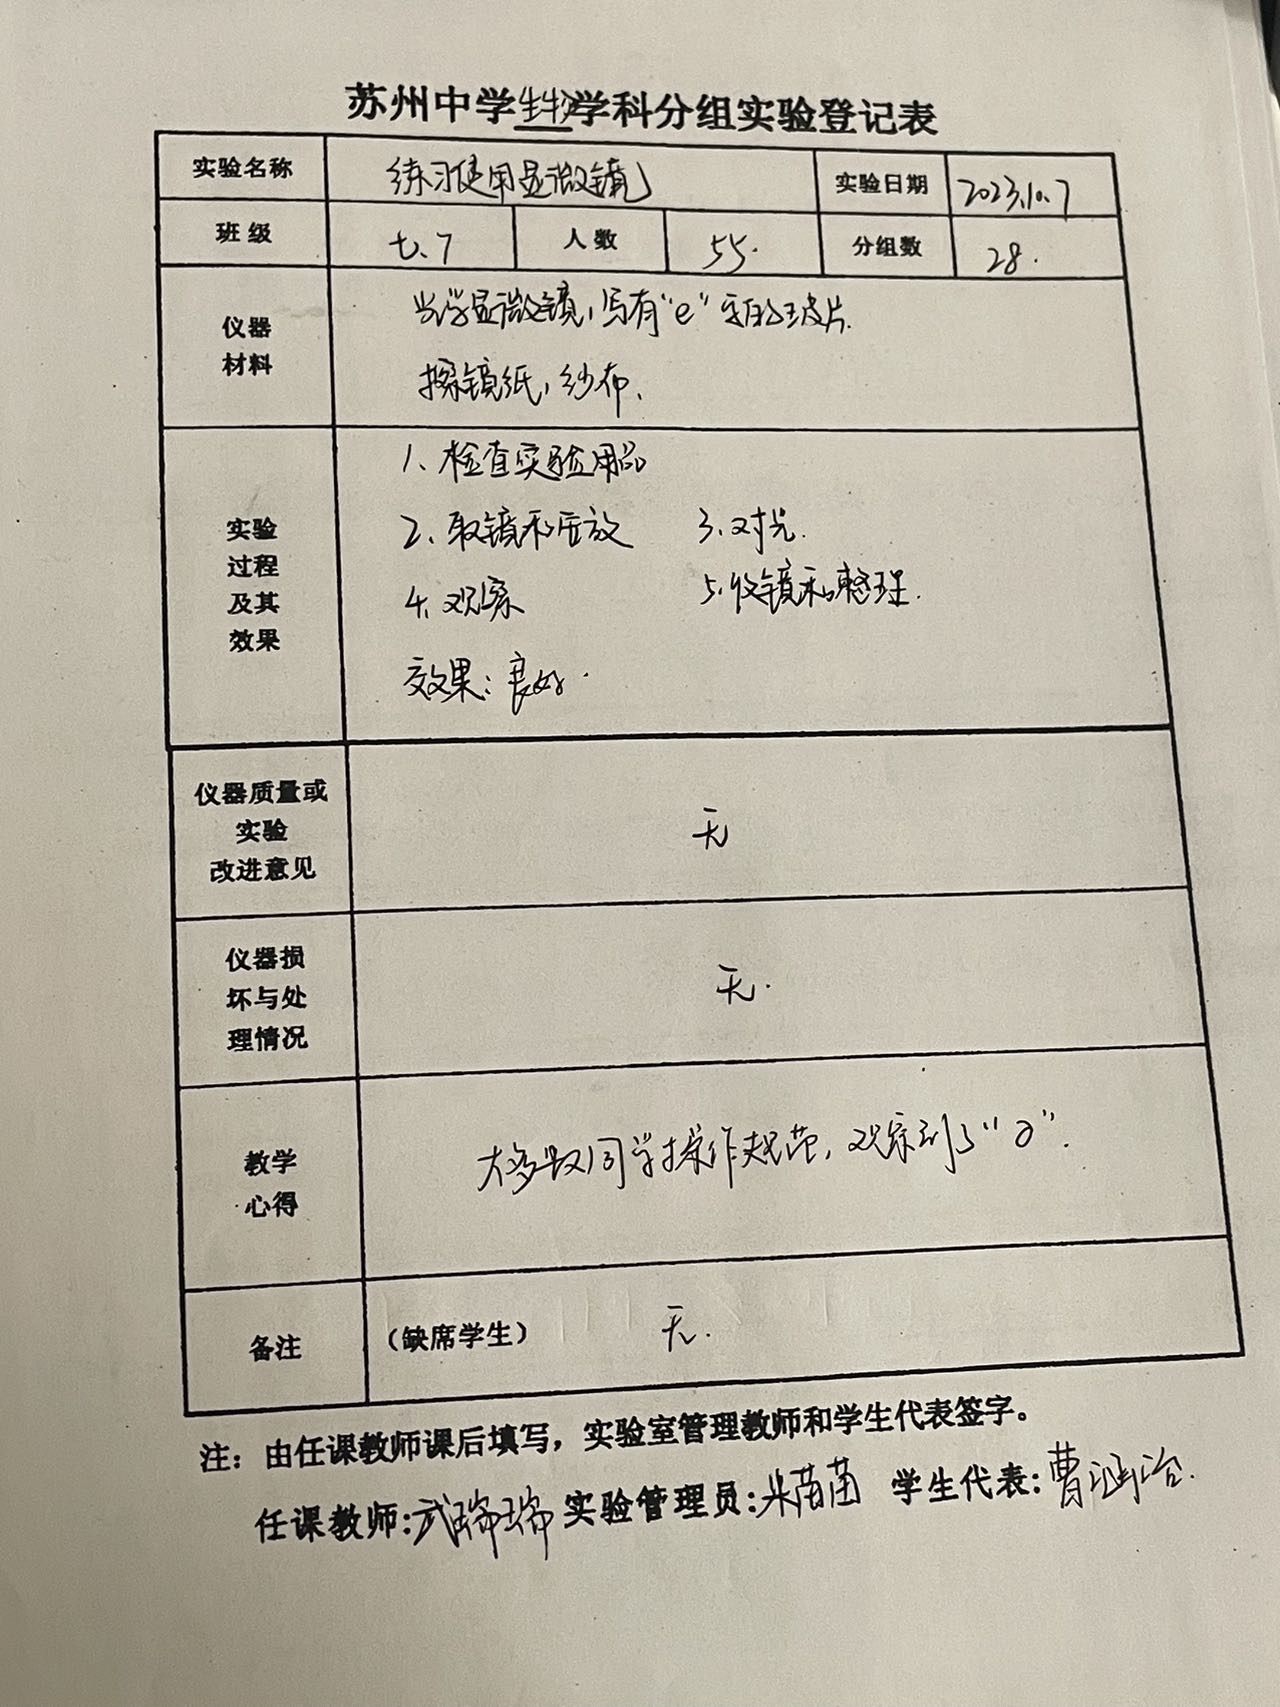 苏州中学生物学科分组实验登记表
实验名称 练习使用显微镜 实验日期 2023.10.7
班级 七.7 人数 55. 分组数 28.
仪器
材料
光学显微镜,写有"e"字的玻片.
擦镜纸,纱布.
实验
过程
及其
效果
1、检查实验用品
2、取镜和安放 3、对光.
4、观察 5、收镜和整理.
效果:良好.
仪器质量或
实验
改进意见
无
仪器损
坏与处
理情况
无.
教学
心得
大多数同学操作规范,观察到了"ə".
备注 (缺席学生) 无.
注:由任课教师课后填写,实验室管理教师和学生代表签字。
任课教师:武瑞瑞 实验管理员:朱苗苗 学生代表:曹涵冶.